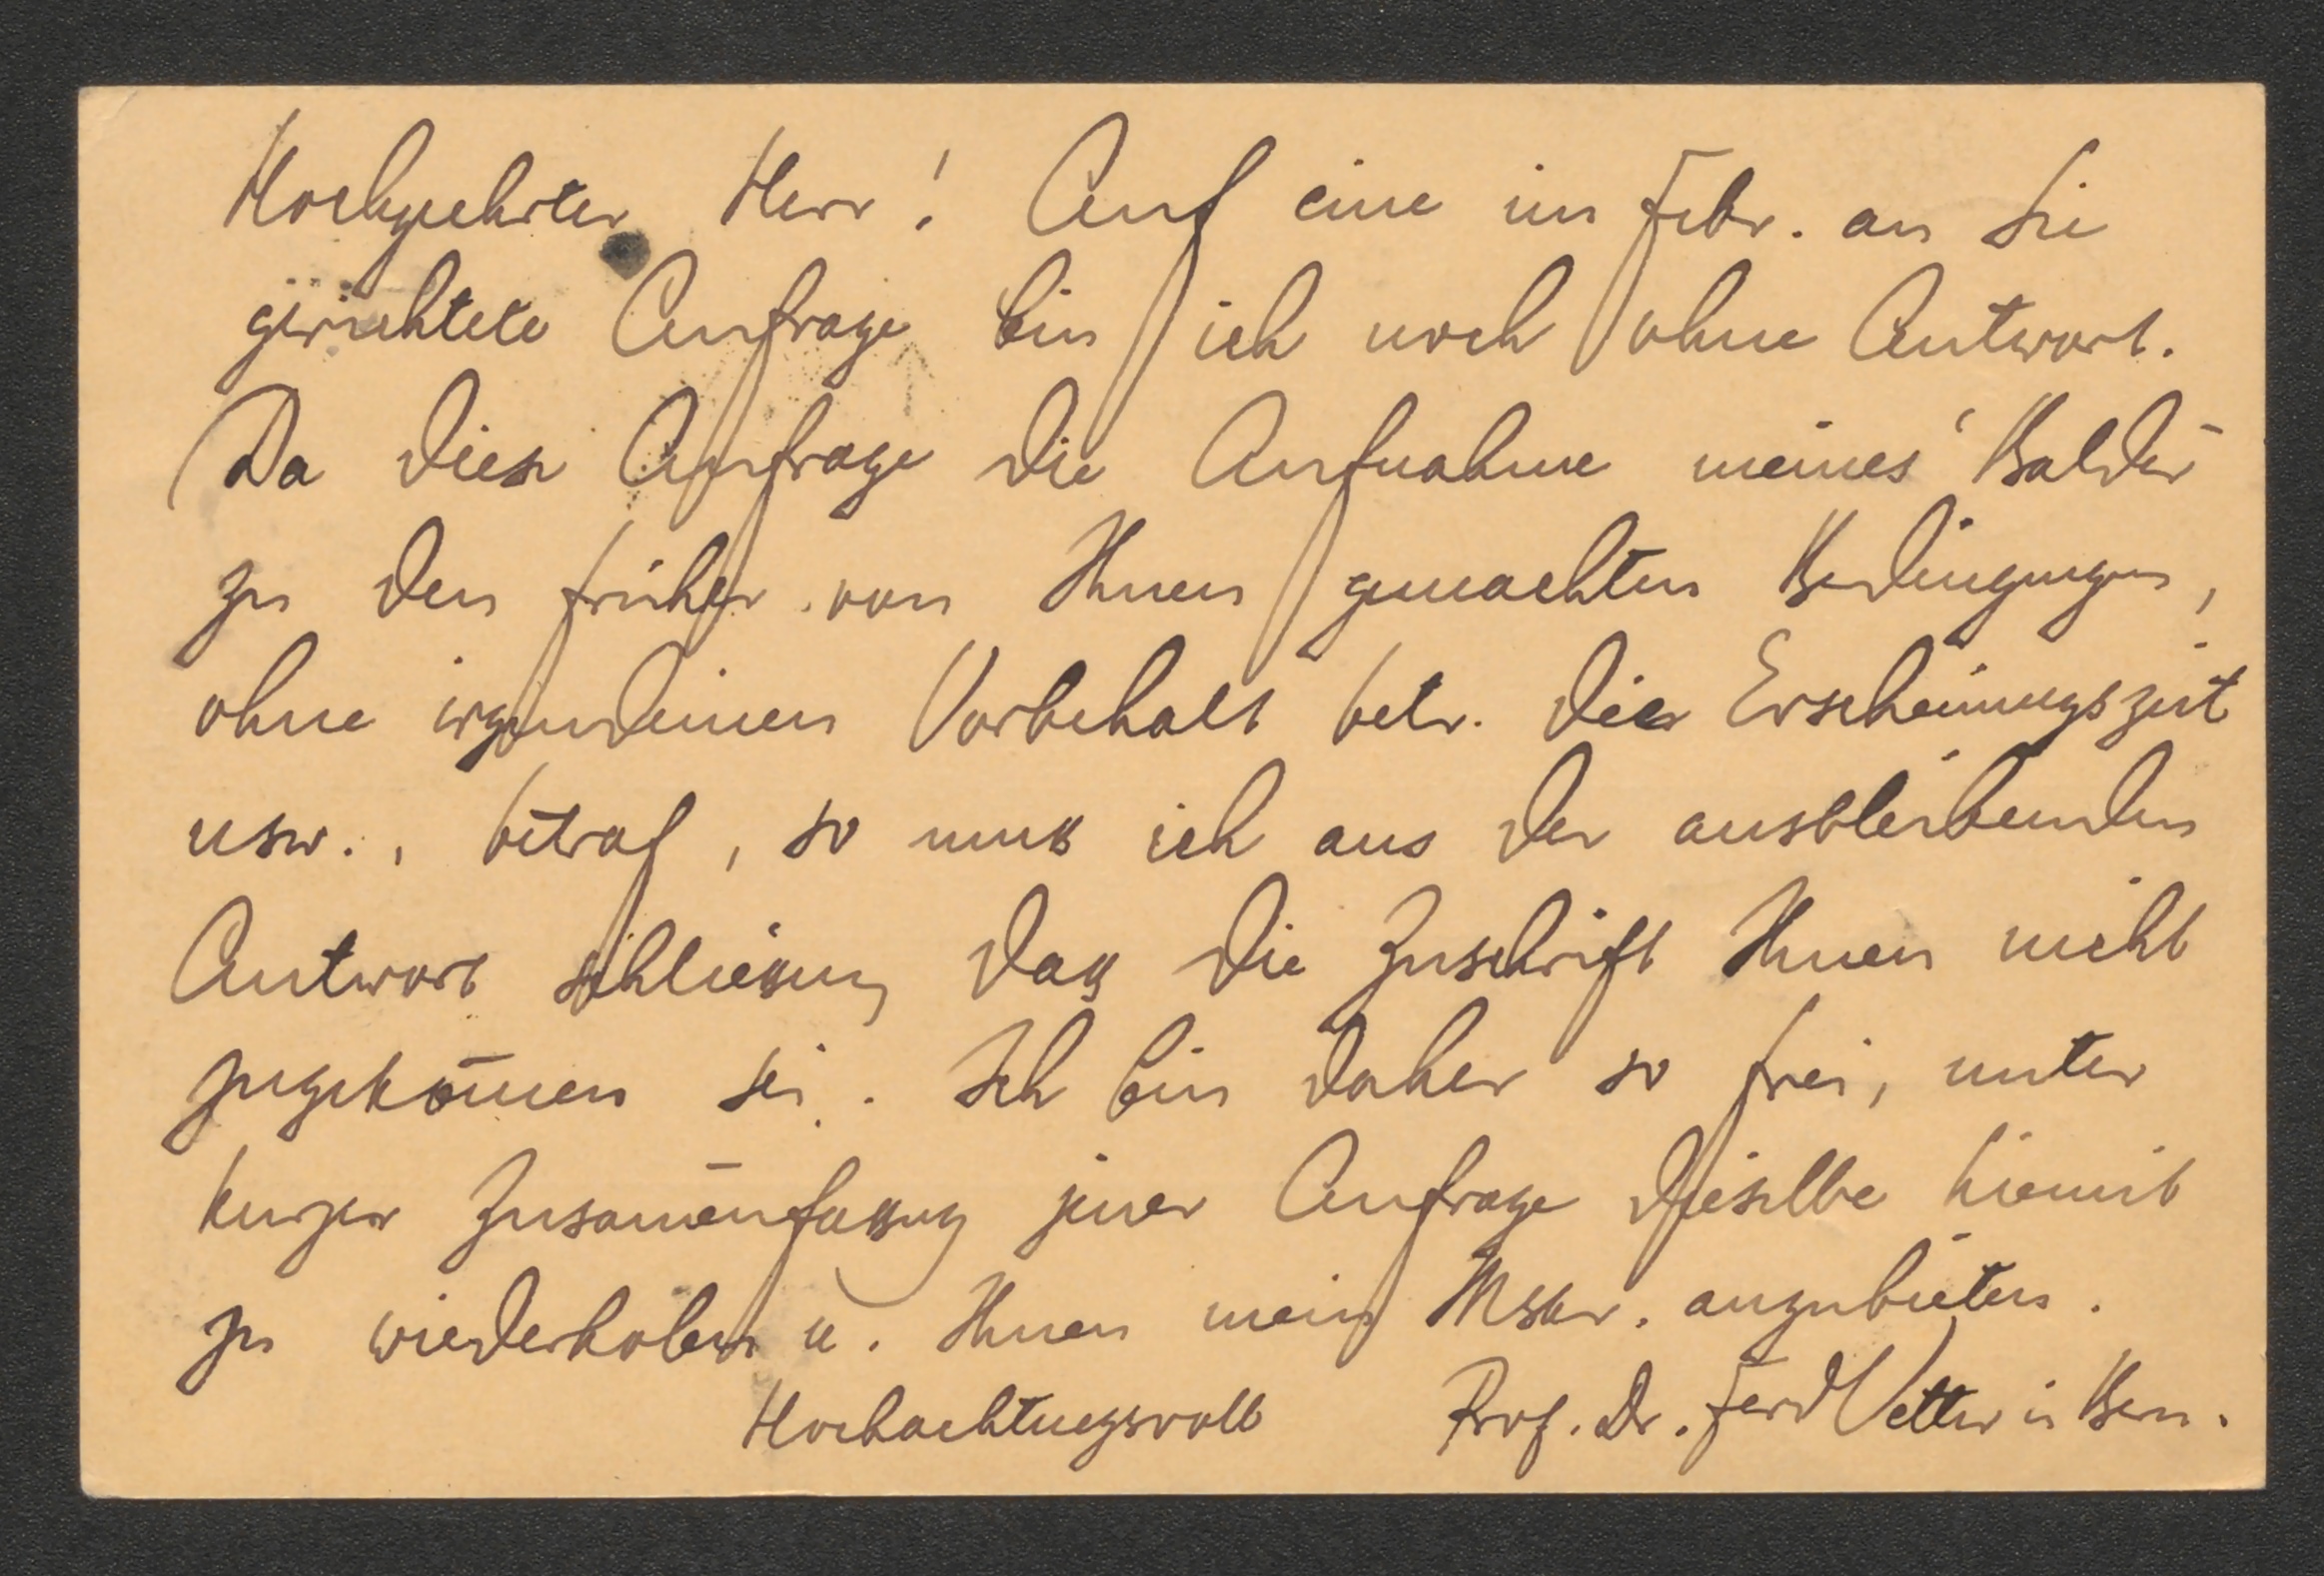 Hochgeehrter Herr! Auf eine im Febr. an Sie
gerichtete Anfrage bin ich noch ohne Antwort.
Da diese Anfrage die Aufnahme meines "Balder"
zu den früher von Ihnen gemachten Bedingungen,
ohne irgendeinen Vorbehalt betr. die Erscheinungszeit
usw., betraf, so muß ich aus der ausbleibenden
Antwort schließen, daß die Zuschrift Ihnen nicht
zugekom̄en sei. Ich bin daher so frei, unter
kurzer Zusam̄enfassung jener Anfrage dieselbe hiemit
zu wiederholen u. Ihnen mein Mskr. anzubieten.
Hochachtungsvoll Prof. Dr. Ferd Vetter in Bern.